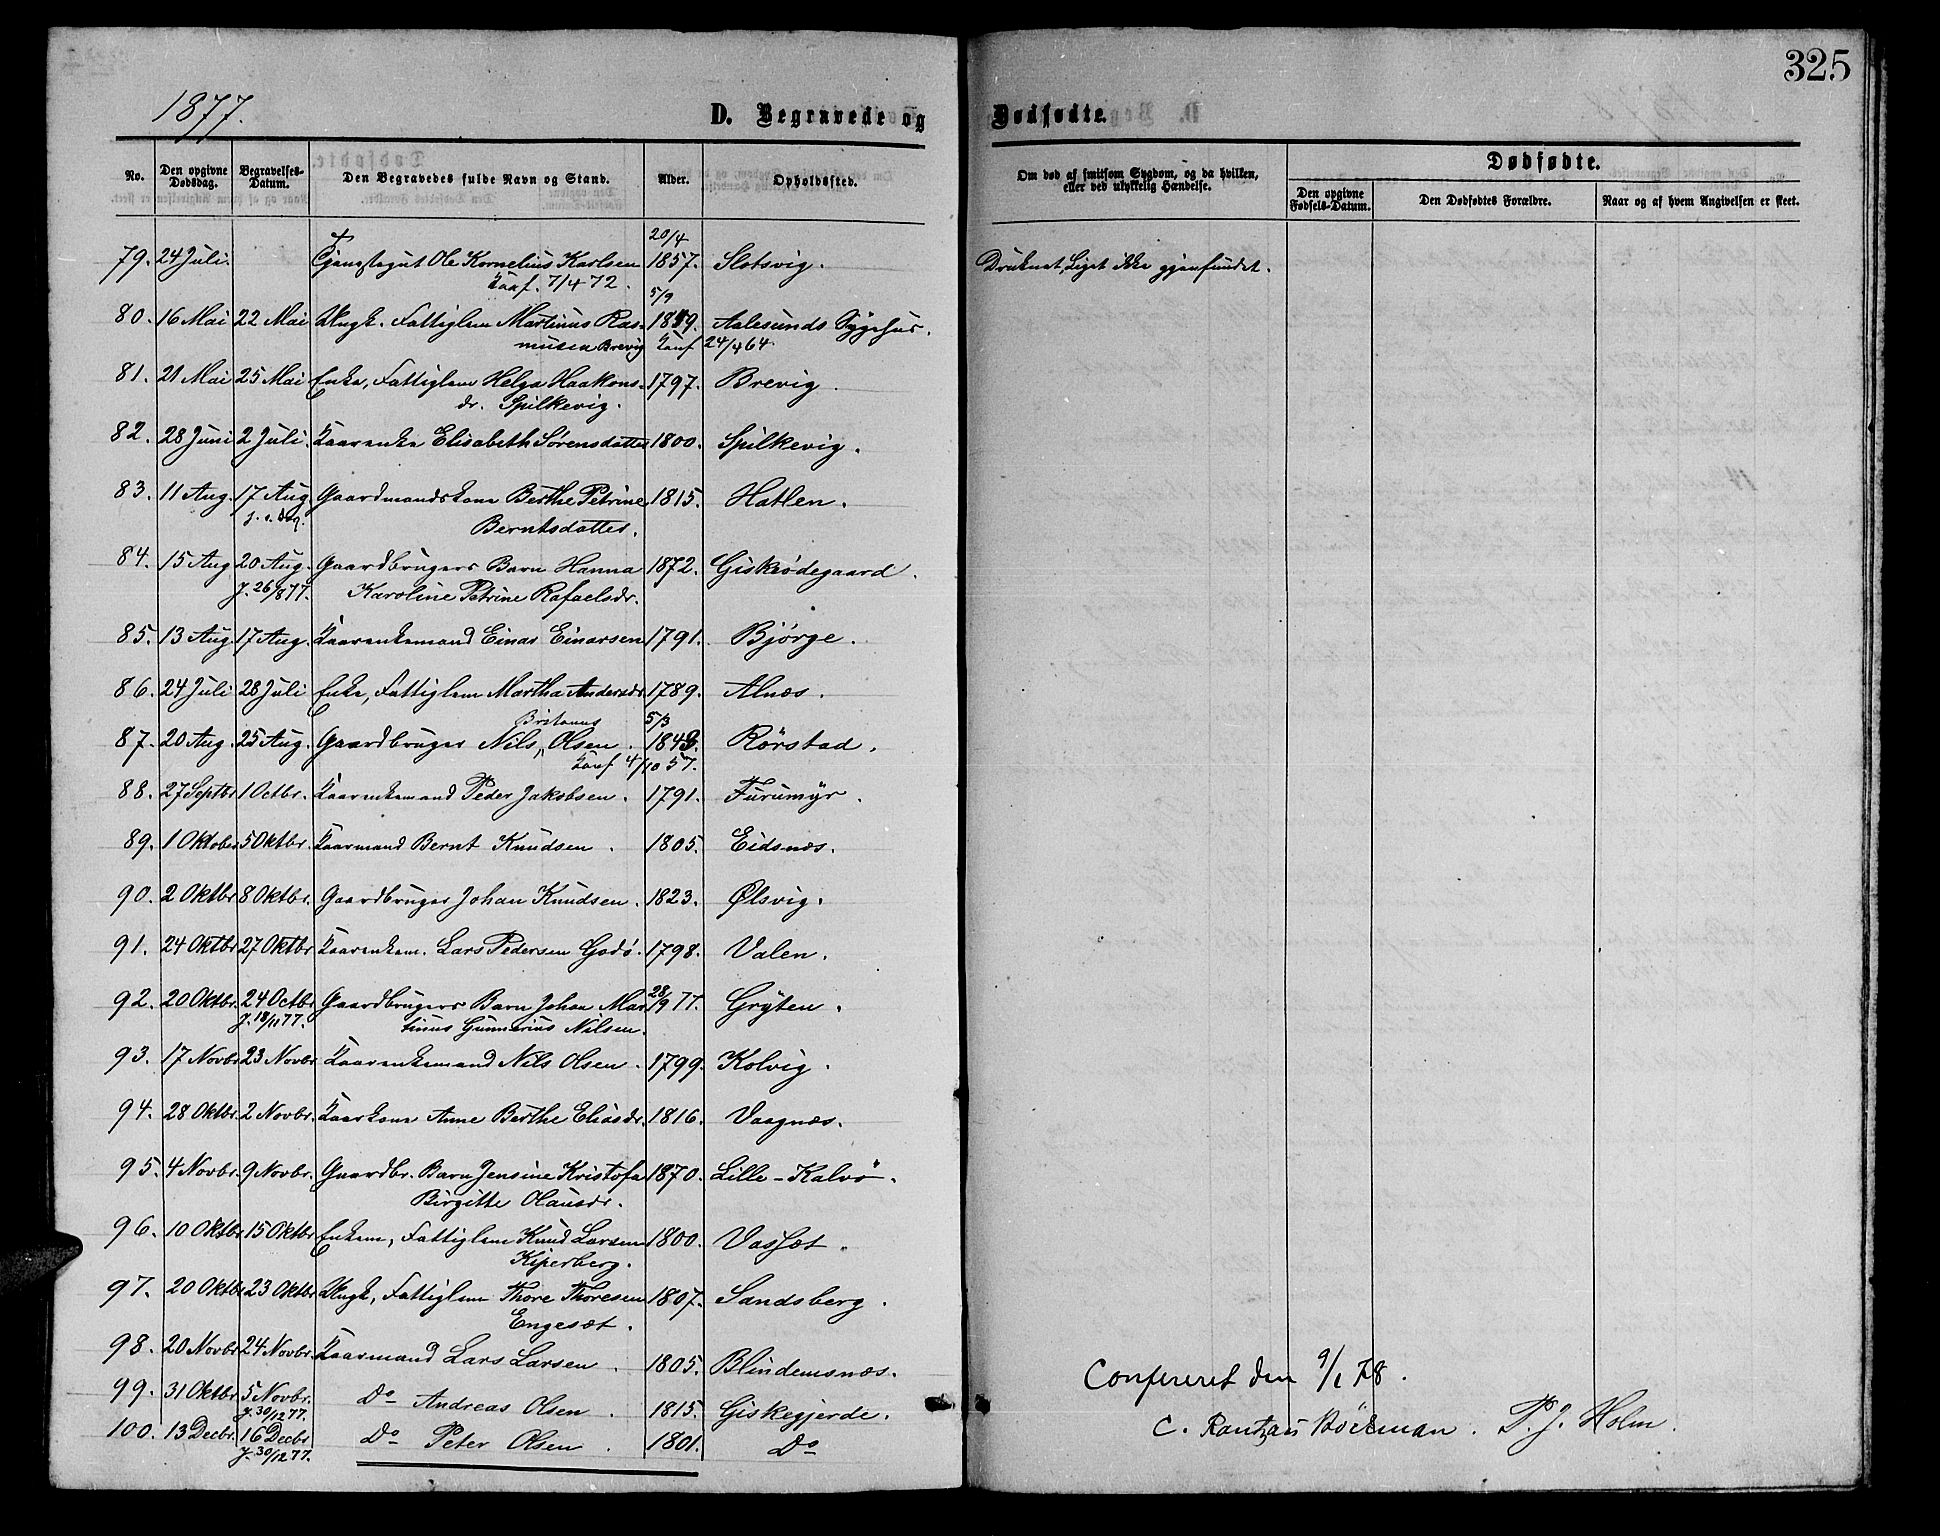 325
1877.
D. Begravede og Dødfødte.
No.
Den opgivne Dødsdag.
Begravelses-Datum.
Den Begravedes fulde Navn og Stand.
Alder.
Opholdssted.
Om død af smitsom Sygdom, og da hvilken, eller ved ulykkelig Hændelse.
Dødfødte.
Den opgivne Fødsels-Datum.
Den Dødfødtes Forældre.
Naar og af hvem Angivelsen er skeet.
20/4
79. 24 Juli. Tjenestegut Ole Kornelius Karlsen 1857. Slotsvig. Druknet, Liget ikke gjenfundet.
Konf. 7/4 72.
5/9
80. 16 Mai 22 Mai Ungk. Fattiglem Martinus Ras- 1849. Aalesunds Sygehus.
musen Brevig Konf 24/4 64.
81. 21 Mai 25 Mai Enke, Fattiglem Helga Haakons- 1797. Brevig.
dr. Spilkevig.
82. 28 Juni 2 Juli. Kaarenke Elisabeth Sørensdatter 1800. Spilkevig.
83. 11 Aug. 17 Aug. Gaardmandskone Berthe Petrine 1815. Hatlen.
j. s. Dag. Berntsdatter.
84. 15 Aug 20 Aug. Gaardbrugers Barn Hanna 1872. Giskeødegaard.
J. 26/8 77. Karoline Petrine Rafaelsdr.
85. 13 Aug. 17 Aug. Kaarenkemand Einar Einarsen 1791. Bjørge.
86. 24 Juli 28 Juli Enke, Fattiglem Martha Andersdr 1789. Alnæs.
Britanus 5/3
87. 20 Aug. 25 Aug. Gaardbruger Nils, Olsen. 1843. Rörstad.
Konf 4/10 57.
88. 27 Septbr 1 Octbr. Kaarenkemand Peder Jakobsen. 1791. Furumyr.
89. 1 Oktober 5 Oktbr. Kaarmand Bernt Knudsen. 1805. Eidsnæs.
90. 2 Oktbr 8 Oktbr. Gaardbruger Johan Knudsen. 1823. Ølsvig.
91. 24 Oktbr 27 Oktbr Kaarenkem. Lars Pedersen Godø. 1798. Valen.
92. 20 Oktbr. 24 Octbr Gaardbrugers Barn Johan Mar 28/9 77. Gryten.
J. 18/11 77. tinus Gunnerius Nilsen.
93. 17 Novbr 23 Novbr Kaarenkemand Nils Olsen. 1799. Kolvig.
94. 28 Oktbr. 2 Novbr. Kaarkone Anne Berthe Eliasdr. 1816. Vaagnæs.
95. 4 Novbr. 9 Novbr. Gaardbr. Barn Jensine Kristofa 1870. Lille-Kalvö.
Birgitte Olausdr.
96. 10 Oktbr 15 Oktbr Enkem, Fattiglem Knud Larsen 1800. Vasset.
Kiperberg.
97. 20 Oktbr 23 Oktbr Ungk, Fattiglem Thore Thoresen 1807. Sandsberg.
Engesæt.
98. 20 Novbr 24 Novbr. Kaarmand Lars Larsen. 1805. Blindemsnæs.
99. 31 Oktbr. 5 Novbr. Do Andreas Olsen. 1815. Giskegjerde.
J. 30/12 77.
100. 13 Decbr. 16 Decbr. Do Peter Olsen. 1801. Do
J. 30/12 77.
Confereret den 9/1 78.
C. Rantzau Böckman. P. J. Holm.